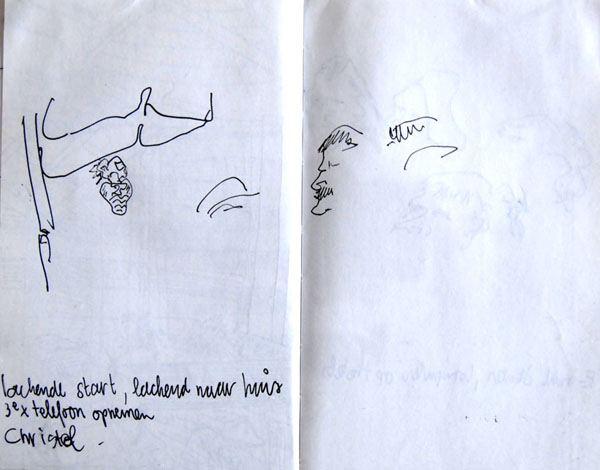 lachende start, lachend naar huis
3e x telefoon opnemen
Christel